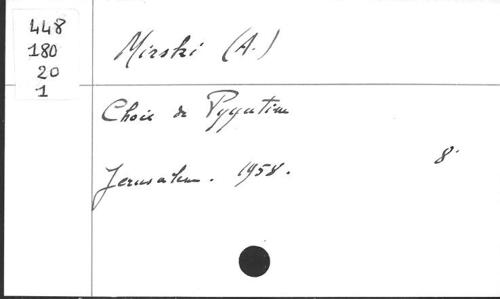 448
180
20
1
Mirski (A.)
Choix de Pyyutim
Jerusalem. 1958.
8°